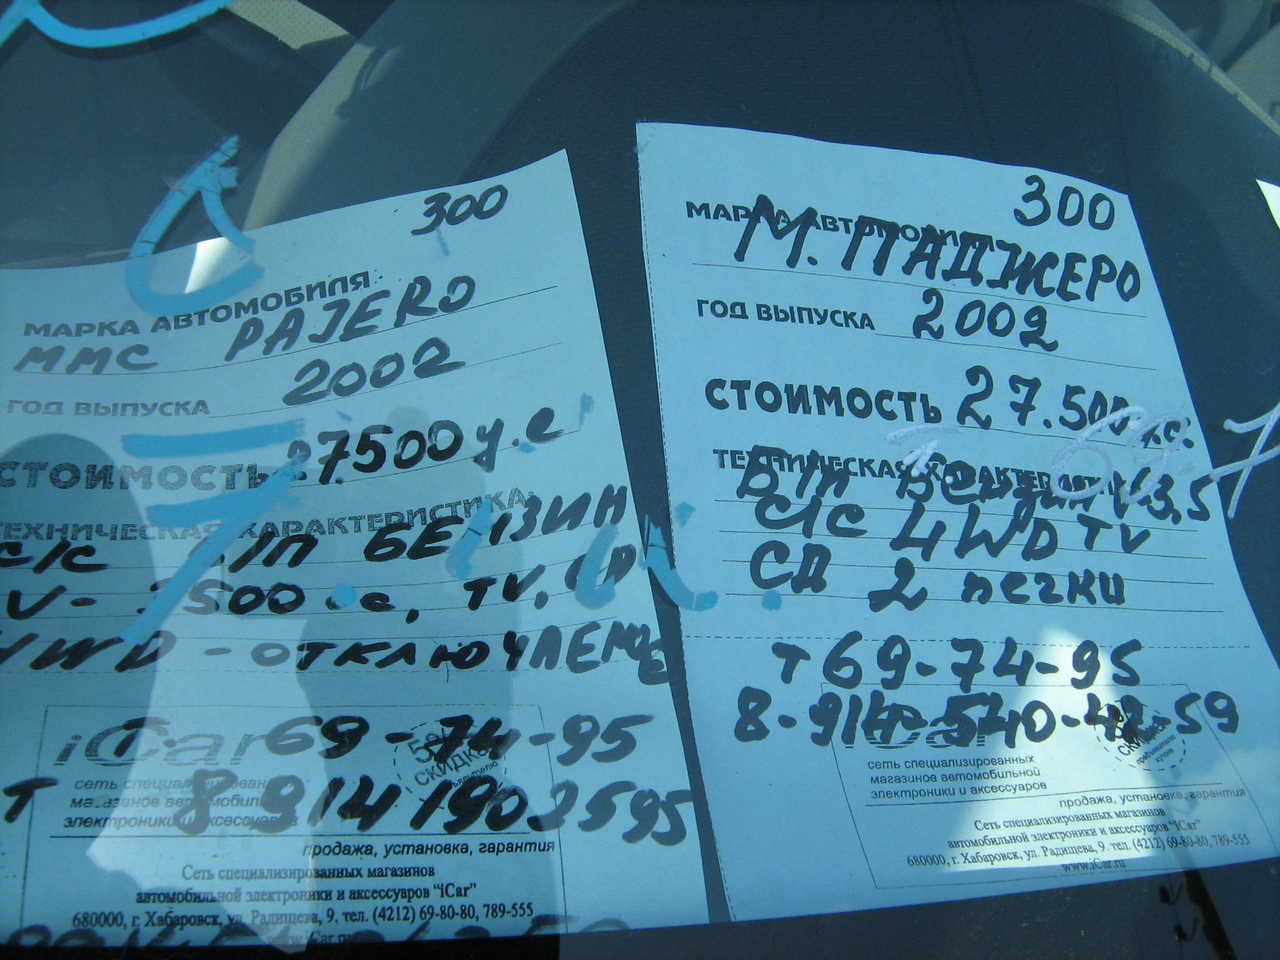 300
МАРКА АВТОМОБИЛЯ
ММС PAJERO
2002
ГОД ВЫПУСКА
СТОИМОСТЬ 27.500 у.е
ТЕХНИЧЕСКАЯ ХАРАКТЕРИСТИКА:
С/С Б/П БЕНЗИН
V- 3500 TV, CD
4WD - ОТКЛЮЧАЕМОЕ
т. 69-74-95
iCar
5% СКИДКА
сеть специализированных
магазинов автомобильной
электроники и аксессуаров
Т 8 914 190 35 95
продажа, установка, гарантия
Сеть специализированных магазинов
автомобильной электроники и аксессуаров "iCar"
680000, г. Хабаровск, ул. Радищева, 9. тел. (4212) 69-80-80, 789-555
www.iCar.ru
300
МАРКА АВТОМОБИЛЯ
М. ПАДЖЕРО
ГОД ВЫПУСКА 2002
СТОИМОСТЬ 27.500 у.е.
ТЕХНИЧЕСКАЯ ХАРАКТЕРИСТИКА
Б/п Бензин V3,5
С/С 4WD TV
СД 2 печки
т 69-74-95
8-914-540-42-59
iCar
СКИДКА
сеть специализированных
магазинов автомобильной
электроники и аксессуаров
продажа, установка, гарантия
Сеть специализированных магазинов
автомобильной электроники и аксессуаров "iCar"
680000, г. Хабаровск, ул. Радищева, 9. тел. (4212) 69-80-80, 789-555
www.iCar.ru